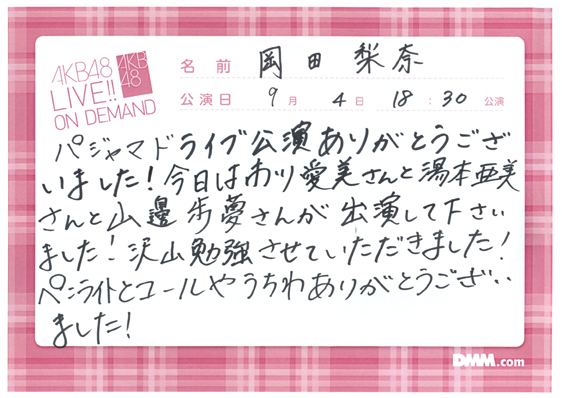 AKB48
LIVE!!
ON DEMAND
AKB
48
名前 岡田梨奈
公演日 9月4日 18:30 公演
パジャマドライブ公演ありがとうござ
いました!今日は市川愛美さんと湯本亜美
さんと山邊歩夢さんが出演して下さい
ました!沢山勉強させていただきました!
ペンライトとコールやうちわありがとうござい
ました!
DMM.com